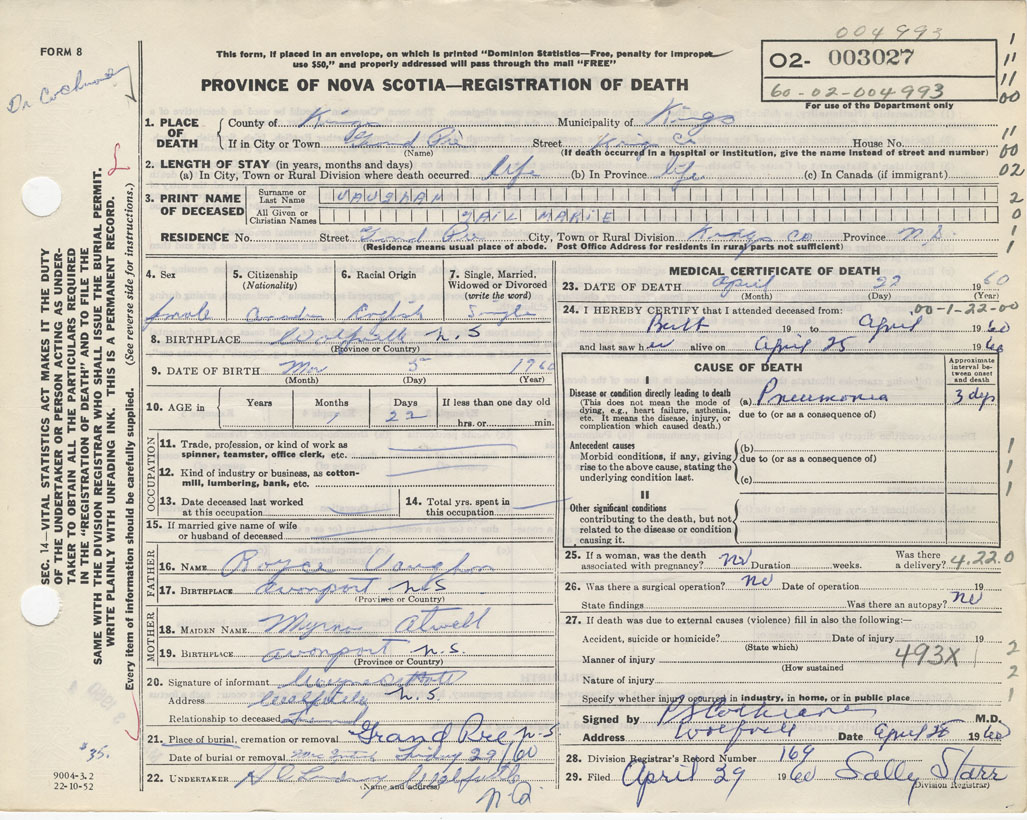 FORM 8
This form, if placed in an envelope, on which is printed "Dominion Statistics—Free, penalty for improper
use $50," and properly addressed will pass through the mail "FREE"
PROVINCE OF NOVA SCOTIA—REGISTRATION OF DEATH
004993
O2- 003027
60-02-004993
For use of the Department only
SEC. 14—VITAL STATISTICS ACT MAKES IT THE DUTY
OF THE UNDERTAKER OR PERSON ACTING AS UNDER-
TAKER TO OBTAIN ALL THE PARTICULARS REQUIRED
IN THE "REGISTRATION OF DEATH" AND TO FILE THE
SAME WITH THE DIVISION REGISTRAR WHO SHALL ISSUE THE BURIAL PERMIT.
WRITE PLAINLY WITH UNFADING INK. THIS IS A PERMANENT RECORD.
Every item of information should be carefully supplied. (See reverse side for instructions.)
1. PLACE OF DEATH
County of Kings Municipality of Kings
If in City or Town Grand Pré Street Kings Co House No.
(Name) (If death occurred in a hospital or institution, give name instead of street and number)
2. LENGTH OF STAY (in years, months and days)
(a) In City, Town or Rural Division where death occurred life (b) In Province life (c) In Canada (if immigrant)
3. PRINT NAME OF DECEASED
Surname or Last Name VAUGHAN
All Given or Christian Names GAIL MARIE
RESIDENCE No. Street Grand Pré City, Town or Rural Division Kings Co Province N.S.
(Residence means usual place of abode. Post Office Address for residents in rural parts not sufficient)
4. Sex female
5. Citizenship (Nationality) Canadian
6. Racial Origin English
7. Single, Married, Widowed or Divorced (write the word) Single
8. BIRTHPLACE Wolfville N.S
(Province or Country)
9. DATE OF BIRTH Mar 5 1960
(Month) (Day) (Year)
10. AGE in Years Months Days If less than one day old
1 22 hrs. or min.
OCCUPATION
11. Trade, profession, or kind of work as
spinner, teamster, office clerk, etc.
12. Kind of industry or business, as cotton-
mill, lumbering, bank, etc.
13. Date deceased last worked
at this occupation
14. Total yrs. spent in
this occupation
15. If married give name of wife
or husband of deceased
FATHER
16. NAME Royce Vaughn
17. BIRTHPLACE avonport N.S
(Province or Country)
MOTHER
18. MAIDEN NAME Myrna Atwell
19. BIRTHPLACE avonport N.S.
(Province or Country)
20. Signature of informant
Address Wolfville N.S
Relationship to deceased
21. Place of burial, cremation or removal Grand Pre N.S
Date of burial or removal 29/60
22. UNDERTAKER Lindsay Wolfville
(Name and address)
$35.
9004-3.2
22-10-52
MEDICAL CERTIFICATE OF DEATH
23. DATE OF DEATH April 27 1960
(Month) (Day) (Year)
00-1-22-00
24. I HEREBY CERTIFY that I attended deceased from:
Birth 19 to April 1960
and last saw her alive on April 25 1960
CAUSE OF DEATH
Approximate interval between onset and death
I
Disease or condition directly leading to death
(This does not mean the mode of
dying, e.g., heart failure, asthenia,
etc. It means the disease, injury, or
complication which caused death.)
(a) Pneumonia 3 dys
due to (or as a consequence of)
Antecedent causes
Morbid conditions, if any, giving
rise to the above cause, stating the
underlying condition last.
(b)
due to (or as a consequence of)
(c)
II
Other significant conditions
contributing to the death, but not
related to the disease or condition
causing it.
25. If a woman, was the death
associated with pregnancy? No Duration weeks. Was there a delivery? 4.22.0
26. Was there a surgical operation? No Date of operation 19
State findings Was there an autopsy? No
27. If death was due to external causes (violence) fill in also the following:—
Accident, suicide or homicide? Date of injury 19
(State which)
Manner of injury 493X
(How sustained
Nature of injury
Specify whether injury occurred in industry, in home, or in public place
Signed by Cochrane M.D.
Address Wolfville Date April 28 1960
28. Division Registrar's Record Number 169
29. Filed April 29 1960 Sally Starr
(Division Registrar)